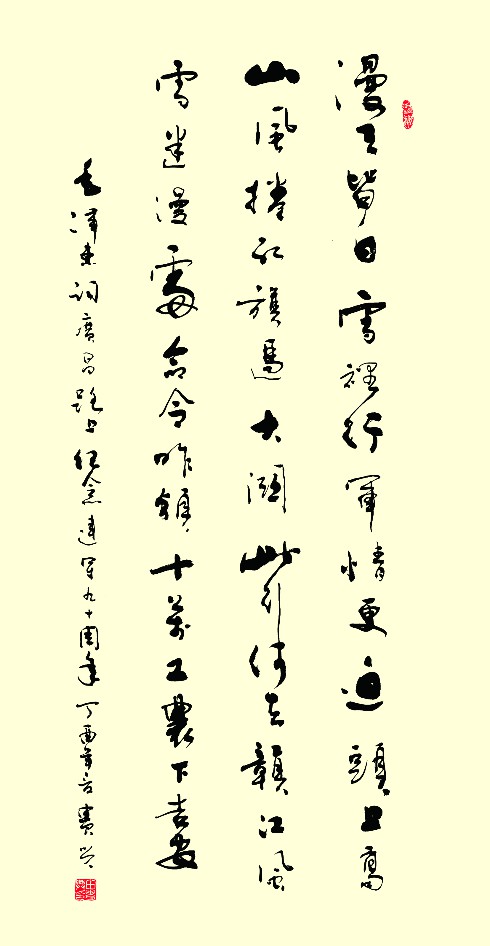 漫天皆白雪裡行軍情更迫頭上高
山風捲紅旗過大關此行何去贛江風
雪迷漫處命令昨頒十萬工農下吉安
毛澤東詞廣昌路上紀念建軍九十周年丁酉年